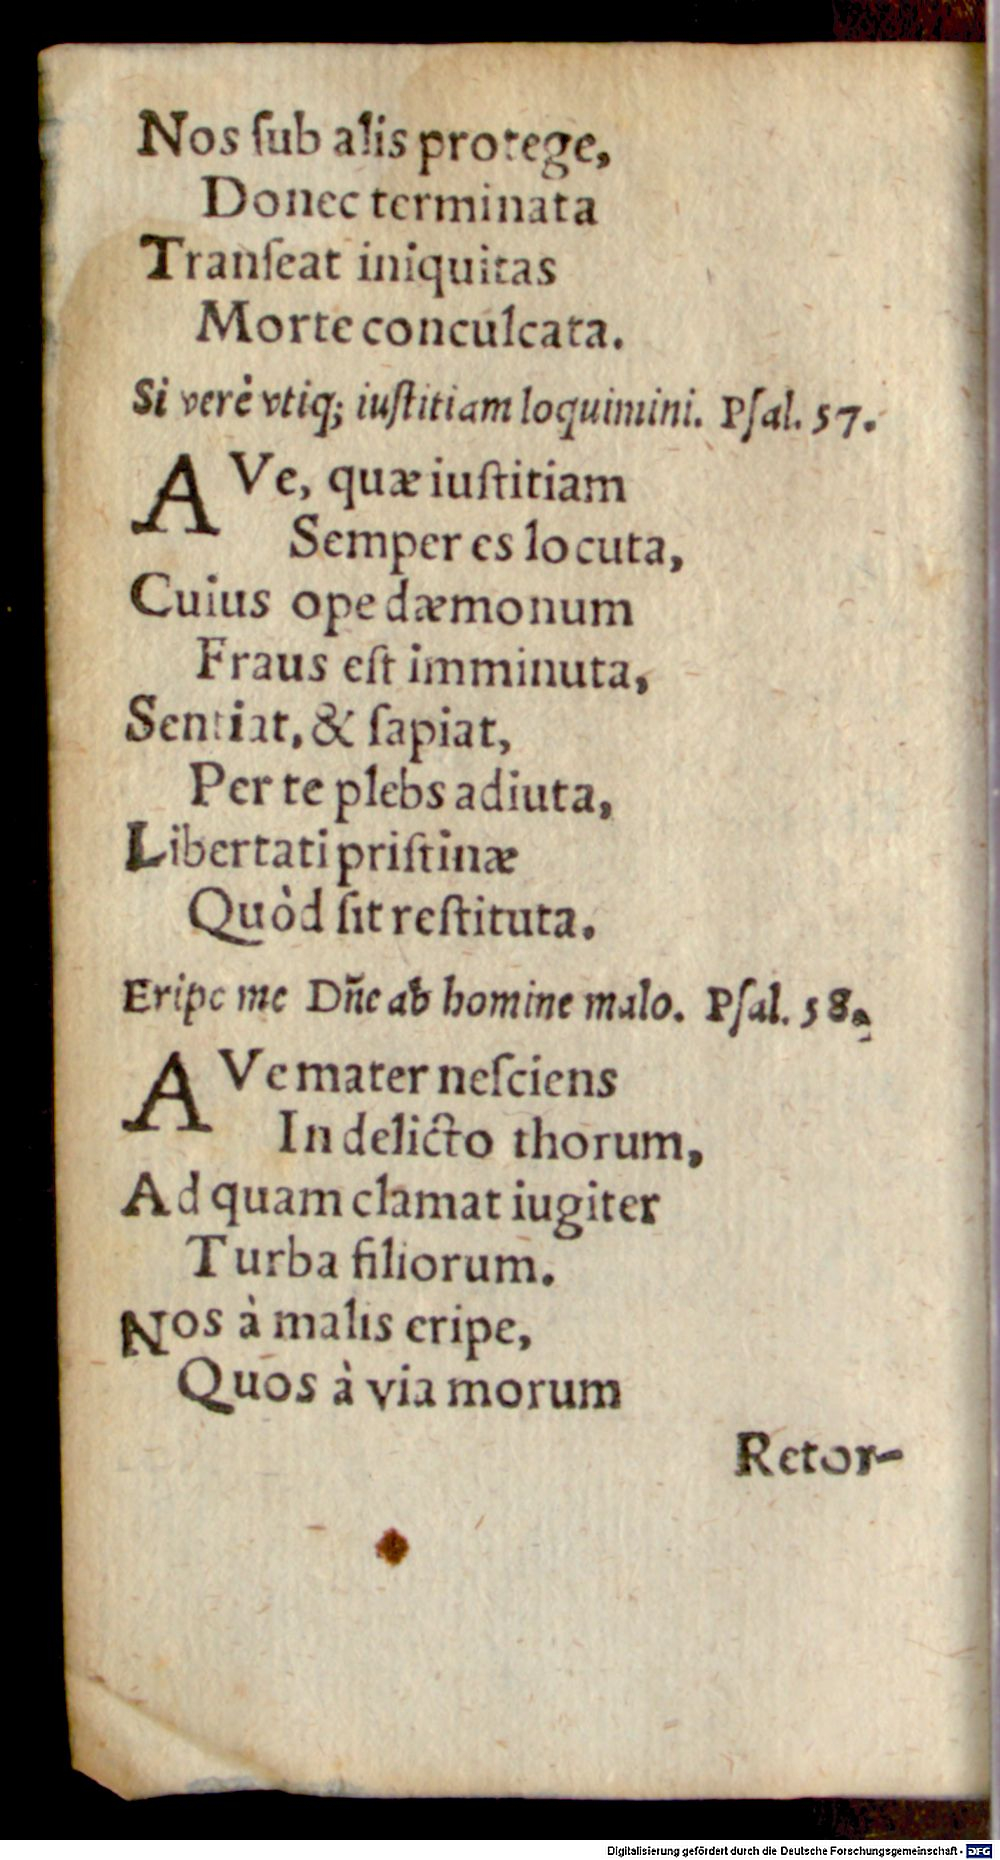 Nos ſub alis protege,
Donec terminata
Tranſeat iniquitas
Morte conculcata.
Si verè vtiq; iuſtitiam loquimini. Pſal. 57.
AVe, quæ iuſtitiam
Semper es locuta,
Cuius ope dæmonum
Fraus eſt imminuta,
Sentiat, & ſapiat,
Per te plebs adiuta,
Libertati priſtinæ
Quòd ſit reſtituta.
Eripe me Dñe ab homine malo. Pſal. 58.
AVe mater neſciens
In delicto thorum,
Ad quam clamat iugiter
Turba filiorum.
Nos à malis eripe,
Quos à via morum
Retor-
Digitalisierung gefördert durch die Deutsche Forschungsgemeinschaft - DFG